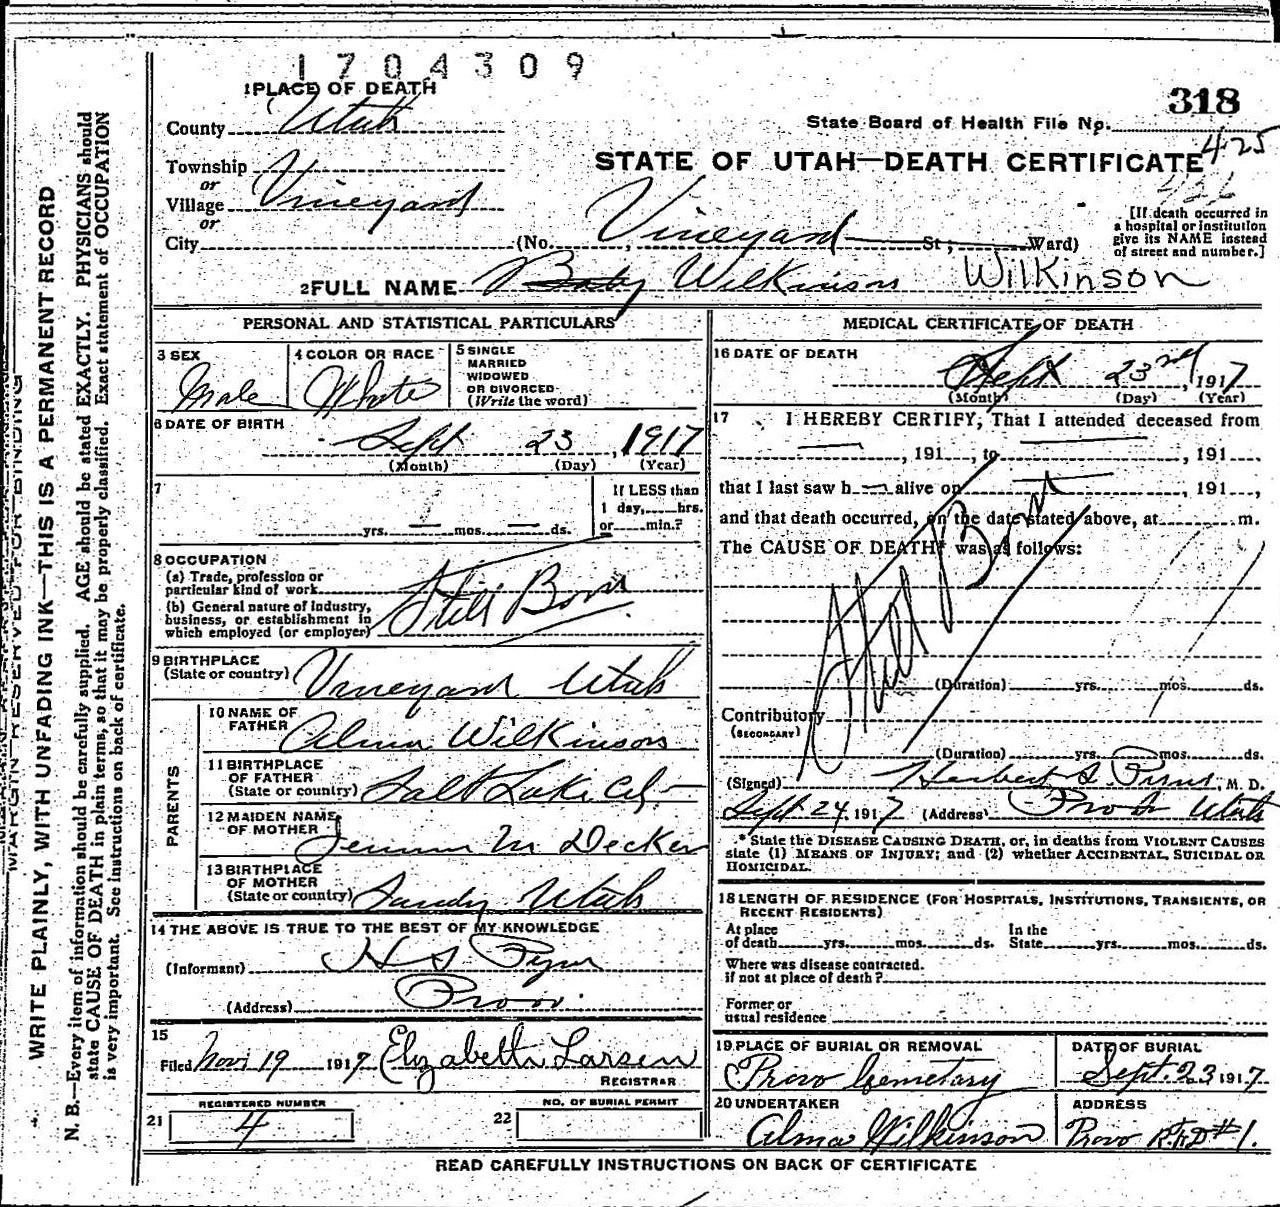 1704309
1 PLACE OF DEATH
318
County Utah
State Board of Health File No.
425
Township
or
Village Vineyard
or
STATE OF UTAH—DEATH CERTIFICATE
City (No. Vineyard St; Ward)
[If death occurred in
a hospital or institution
give its NAME instead
of street and number.]
2 FULL NAME Baby Wilkinson Wilkinson
PERSONAL AND STATISTICAL PARTICULARS
3 SEX
Male
4 COLOR OR RACE
White
5 SINGLE
MARRIED
WIDOWED
OR DIVORCED
(Write the word)
6 DATE OF BIRTH
Sept 23, 1917
(Month) (Day) (Year)
7
yrs. — mos. — ds.
If LESS than
1 day, hrs.
or min.?
8 OCCUPATION
(a) Trade, profession or
particular kind of work
(b) General nature of Industry,
business, or establishment in
which employed (or employer)
Still Born
9 BIRTHPLACE
(State or country)
Vineyard Utah
PARENTS
10 NAME OF
FATHER
Alma Wilkinson
11 BIRTHPLACE
OF FATHER
(State or country)
Salt Lake
12 MAIDEN NAME
OF MOTHER
M Decker
13 BIRTHPLACE
OF MOTHER
(State or country)
Sandy Utah
14 THE ABOVE IS TRUE TO THE BEST OF MY KNOWLEDGE
(Informant) H S Pyne
(Address) Provo.
15
Filed Nov 19 1917 Elizabeth Larsen
REGISTRAR
21
REGISTERED NUMBER
4
22
NO. OF BURIAL PERMIT
MEDICAL CERTIFICATE OF DEATH
16 DATE OF DEATH
Sept 23rd, 1917
(Month) (Day) (Year)
17 I HEREBY CERTIFY, That I attended deceased from
, 191 , to , 191 ,
that I last saw h — alive on , 191 ,
and that death occurred, on the date stated above, at m.
The CAUSE OF DEATH* was as follows:
Still Born
(Duration) yrs. mos. ds.
Contributory
(SECONDARY)
(Duration) yrs. mos. ds.
(Signed) Herbert S. Pyne, M. D.
Sept 24, 1917 (Address) Provo Utah
* State the DISEASE CAUSING DEATH, or, in deaths from VIOLENT CAUSES
state (1) MEANS OF INJURY; and (2) whether ACCIDENTAL, SUICIDAL OR
HOMICIDAL.
18 LENGTH OF RESIDENCE (FOR HOSPITALS, INSTITUTIONS, TRANSIENTS, OR
RECENT RESIDENTS)
At place
of death yrs. mos. ds.
In the
State yrs. mos. ds.
Where was disease contracted.
if not at place of death?
Former or
usual residence
19 PLACE OF BURIAL OR REMOVAL
Provo Cemetary
DATE OF BURIAL
Sept. 23 1917
20 UNDERTAKER
Alma Wilkinson
ADDRESS
Provo R.F.D #1.
READ CAREFULLY INSTRUCTIONS ON BACK OF CERTIFICATE
MARGIN RESERVED FOR BINDING
WRITE PLAINLY, WITH UNFADING INK—THIS IS A PERMANENT RECORD
N. B.—Every item of information should be carefully supplied. AGE should be stated EXACTLY. PHYSICIANS should
state CAUSE OF DEATH in plain terms, so that it may be properly classified. Exact statement of OCCUPATION
is very important. See instructions on back of certificate.